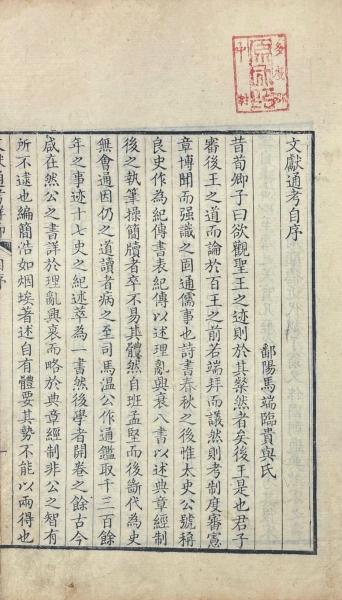 文獻通考自序
鄱陽馬端臨貴與氏
昔荀卿子曰欲觀聖王之迹則於其粲然者矣後王是也君子
審後王之道而論於百王之前若端拜而議然則考制度審憲
章博聞而强識之固通儒事也詩書春秋之後惟太史公號稱
良史作為紀傳書表紀傳以述理亂興衰八書以述典章經制
後之執筆操簡牘者卒不易其體然自班孟堅而後斷代為史
無會通因仍之道讀者病之至司馬温公作通鑑取千三百餘
年之事迹十七史之紀述萃為一書然後學者開卷之餘古今
咸在然公之書詳於理亂興衰而略於典章經制非公之智有
所不逮也編簡浩如烟埃著述自有體要其勢不能以兩得也